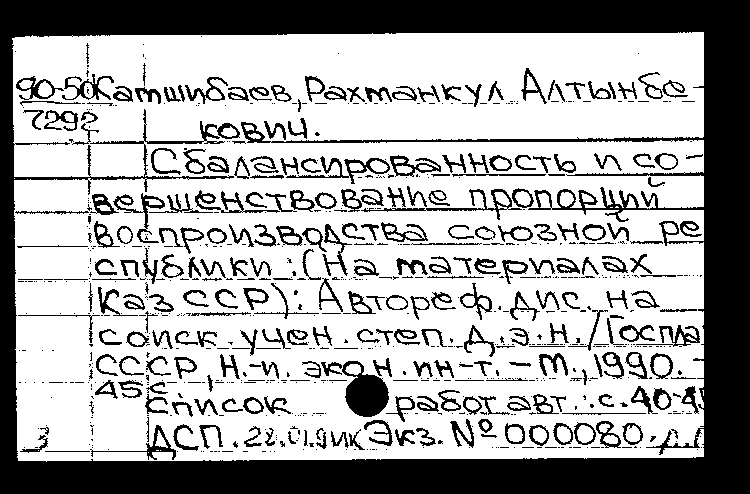 90-50 Катшибаев, Рахманкул Алтынбе-
7292 кович.
Сбалансированность и со-
вершенствование пропорций
воспроизводства союзной ре
спублики : (На материалах
Каз ССР) : Автореф. дис. на
соиск. учен. степ. д.э.н. / Госпла
СССР, Н.-и. экон. ин-т. - М., 1990. -
45 с.
Список работ авт.: с. 40-45
3 ДСП. 28.01.91 Экз. № 000080.